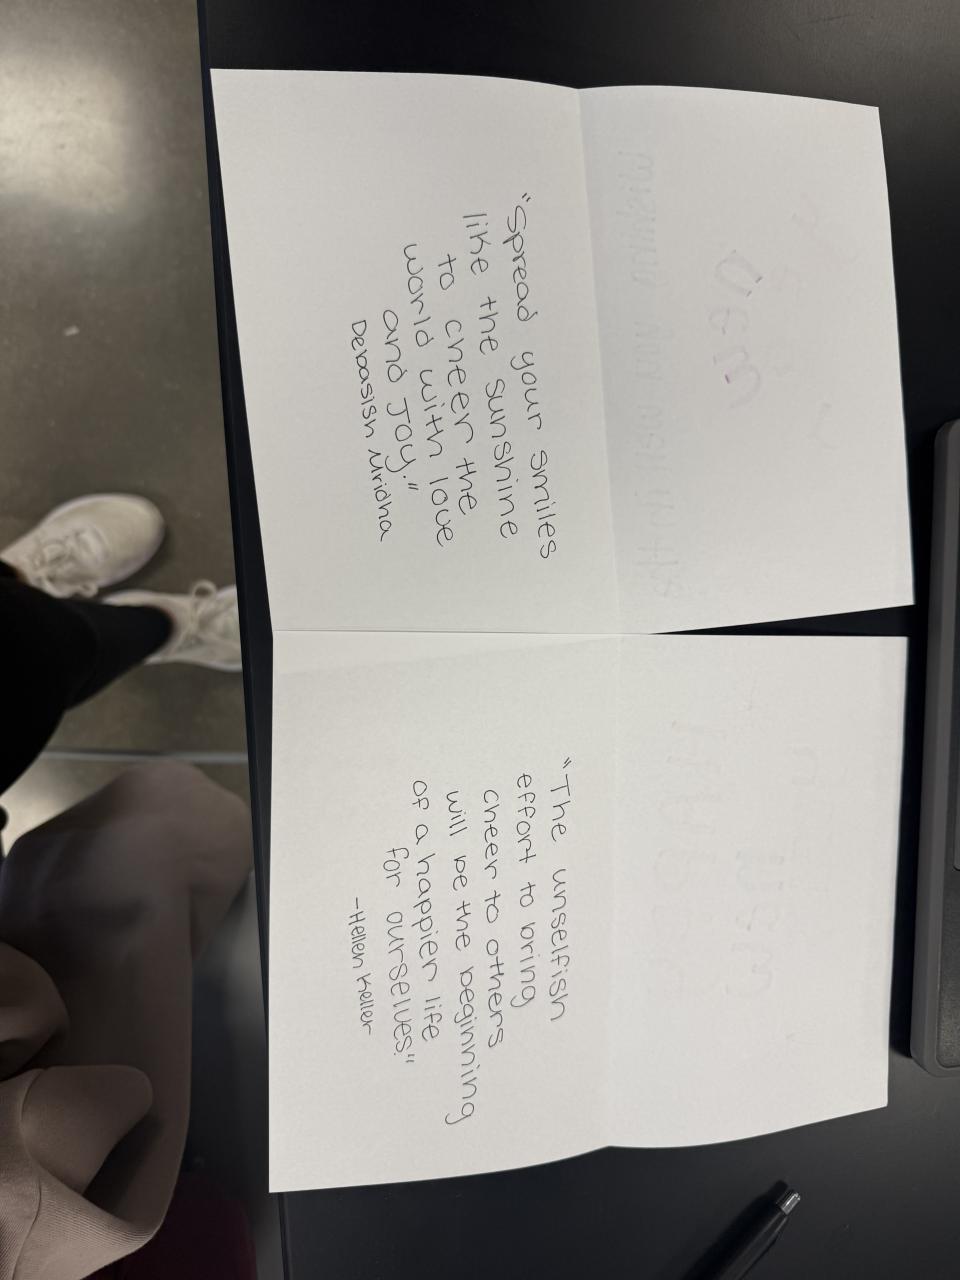 "Spread your smiles
like the sunshine
to cheer the
world with love
and Joy."
Debasish Mridha
"The unselfish
effort to bring
cheer to others
will be the beginning
of a happier life
for ourselves."
-Hellen Keller